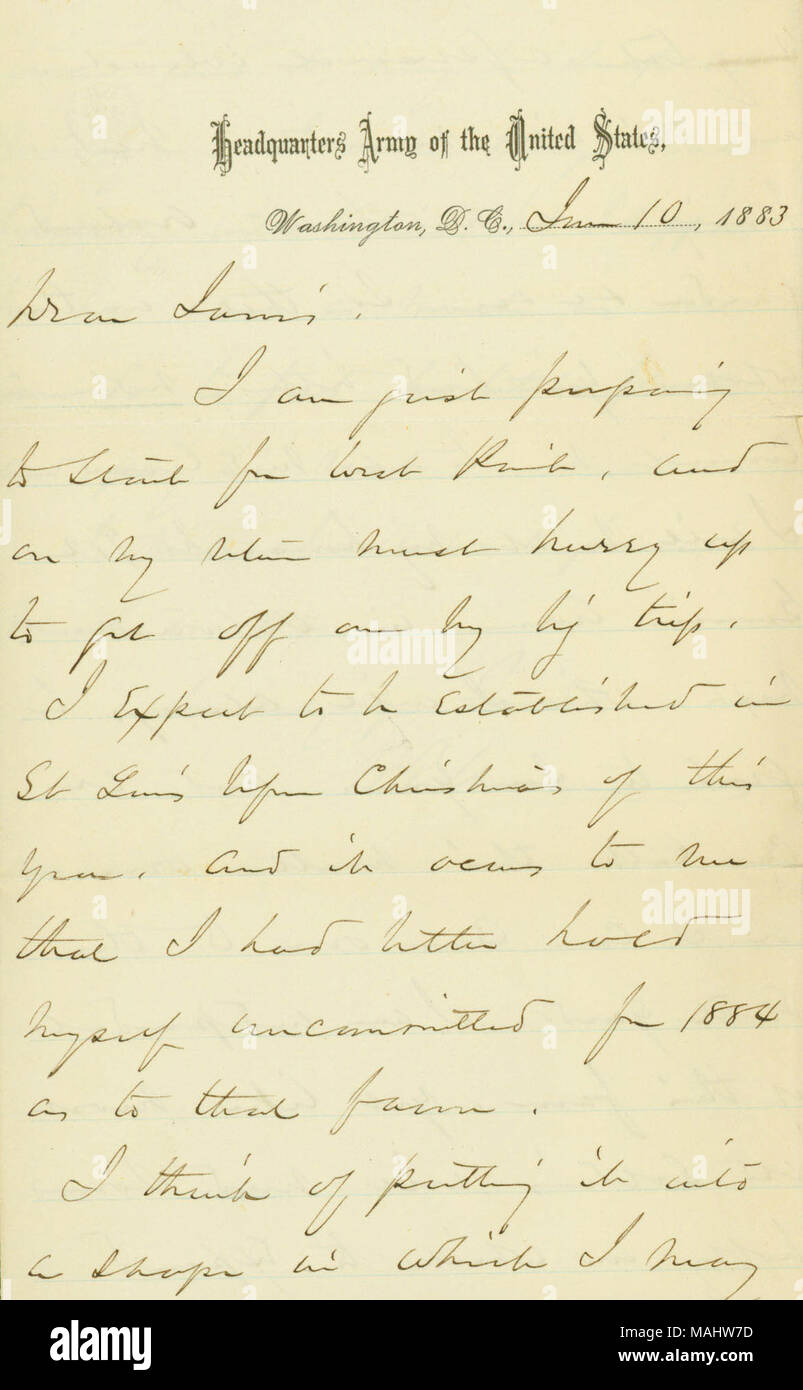 Headquarters Army of the United States,
Washington, D. C., June 10, 1883
Dear
I am just preparing
to start for West Point, and
on my return must hurry up
to get off on my big trip.
I Expect to be Established in
St Louis before Christmas of this
year, and it occurs to me
that I had better hold
myself uncommitted for 1884
as to that farm.
I think of putting it into
a shape in which I may
alamy
Image ID: MAHW7D
www.alamy.com